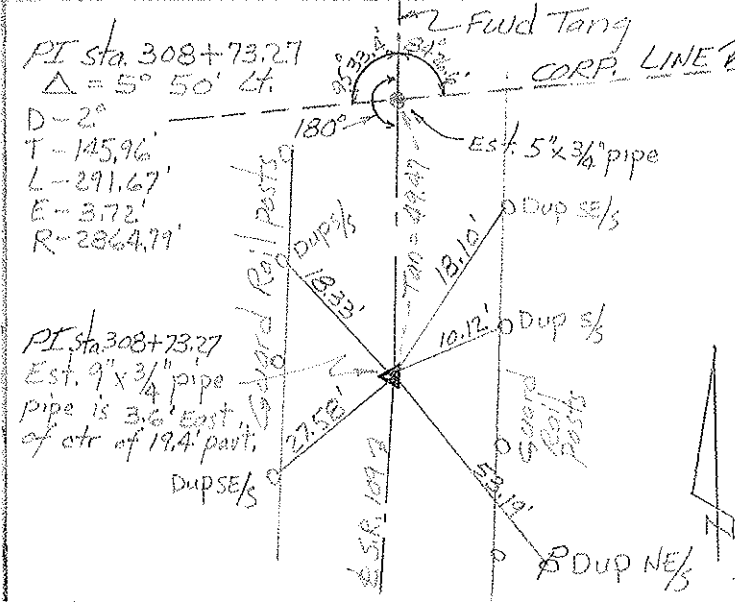 Fwd Tang
PI sta. 308+73.27
Δ = 5° 50' Lt.
D - 2°
T - 145.96'
L - 291.67'
E - 3.72'
R - 2864.79'
95° 33.4'
84° 26.6'
CORP. LINE
180°
Est. 5" x 3/4" pipe
Guard Rail Posts
Dup S/S
Tan = 49.47
18.10'
Dup SE/S
18.33'
10.12'
Dup S/S
PI sta 308+73.27
Est. 9" x 3/4" pipe
pipe is 3.6' East
of ctr of 19.4' pavt.
27.58'
Dup SE/S
Guard
Rail
Posts
53.19'
S.R. 109
Dup NE/S
N